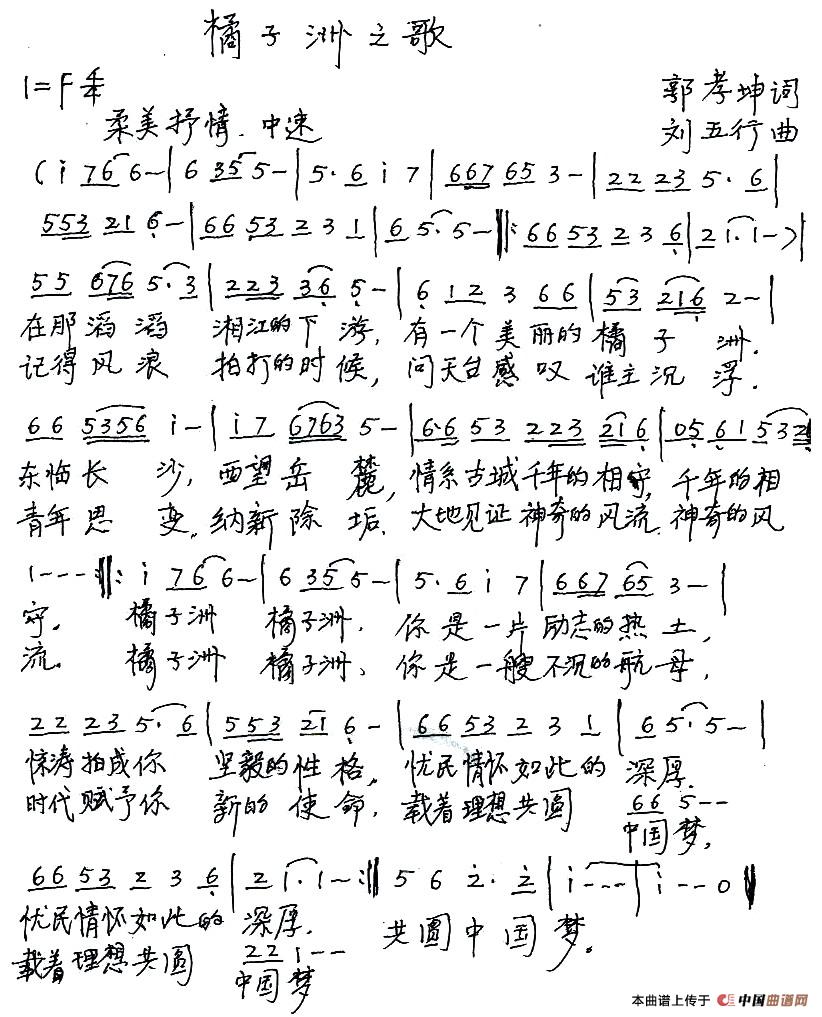 橘子洲之歌
1=F 4/4
郭孝坤词
柔美抒情.中速
刘五行曲
(i 76 6-|6 35 5-|5. 6 i 7|667 65 3-|22 23 5. 6|
553 21 6-|66 53 2 3 1|6 5. 5-:‖:66 53 2 3 6|2 1. 1-)|
55 676 5. 3|223 36 5-|6 12 3 66|53 216 2-|
在那滔滔 湘江的下游,有一个美丽的橘子洲.
记得风浪 拍打的时候,问天台感叹谁主沉浮.
66 5356 i-|i7 6763 5-|6.6 53 223 216|05 61 5321|
东临长沙,西望岳麓,情系古城千年的相守,千年的相
青年思变,纳新除垢.大地见证神奇的风流.神奇的风
1---:‖:i 76 6-|6 35 5-|5. 6 i 7|667 65 3-|
守. 橘子洲 橘子洲,你是一片励志的热土,
流. 橘子洲 橘子洲、你是一艘不沉的航母,
22 23 5. 6|553 21 6-|66 53 2 3 1|6 5. 5-|
惊涛拍成你 坚毅的性格,忧民情怀如此的 深厚.
时代赋予你 新的使命,载着理想共圆 66 5--
中国梦,
66 53 2 3 6|2 1. 1-:‖ 5 6 2. 2|i---|i--0‖
忧民情怀如此的 深厚. 共圆中国梦。
载着理想共圆 22 1--
中国梦
本曲谱上传于 中国曲谱网